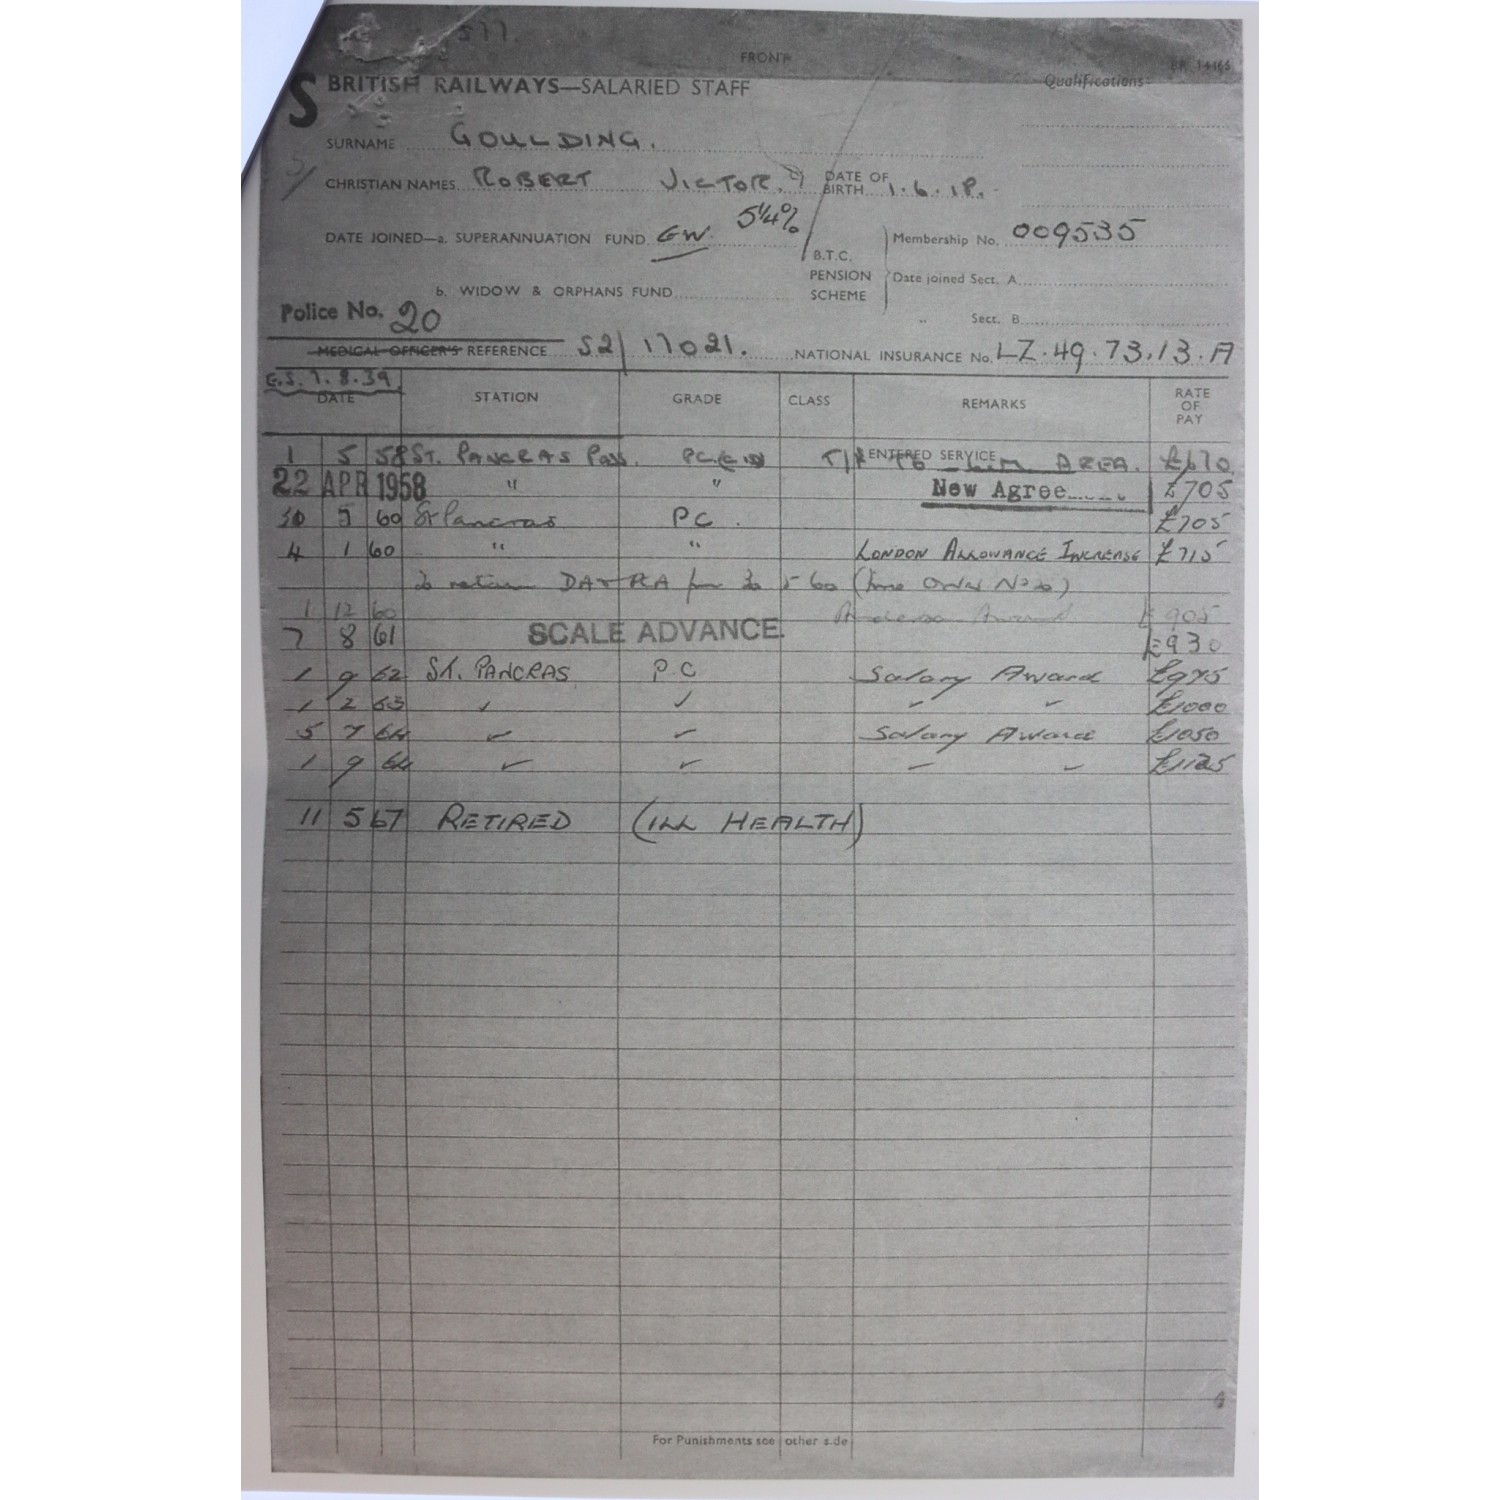 577.
FRONT
BR. 14465
S BRITISH RAILWAYS—SALARIED STAFF Qualifications:
SURNAME GOULDING.
CHRISTIAN NAMES ROBERT VICTOR. DATE OF BIRTH 1.6.18.
DATE JOINED—a. SUPERANNUATION FUND GW. 5¼% B.T.C. PENSION SCHEME Membership No. 009535
Date joined Sect. A
b. WIDOW & ORPHANS FUND
" Sect. B
Police No. 20
MEDICAL OFFICER'S REFERENCE S2/17021. NATIONAL INSURANCE No. LZ.49.73.13.A
E.S. 7.8.39
DATE STATION GRADE CLASS REMARKS RATE OF PAY
ENTERED SERVICE
1 5 58 ST. PANCRAS Pass. PC T/F TO L.M AREA. £670
22 APR 1958 " " New Agree £705
30 5 60 St Pancras PC. £705
4 1 60 " " LONDON ALLOWANCE INCREASE £715
to return 5 60
1 12 60 Award £905
7 8 61 SCALE ADVANCE. £930
1 9 62 ST. PANCRAS P.C Salary Award £975
1 2 63 ✓ ✓ £1000
5 7 64 ✓ ✓ Salary Award £1050
1 9 64 ✓ ✓ £1125
11 5 67 RETIRED (ILL HEALTH)
For Punishments see other side